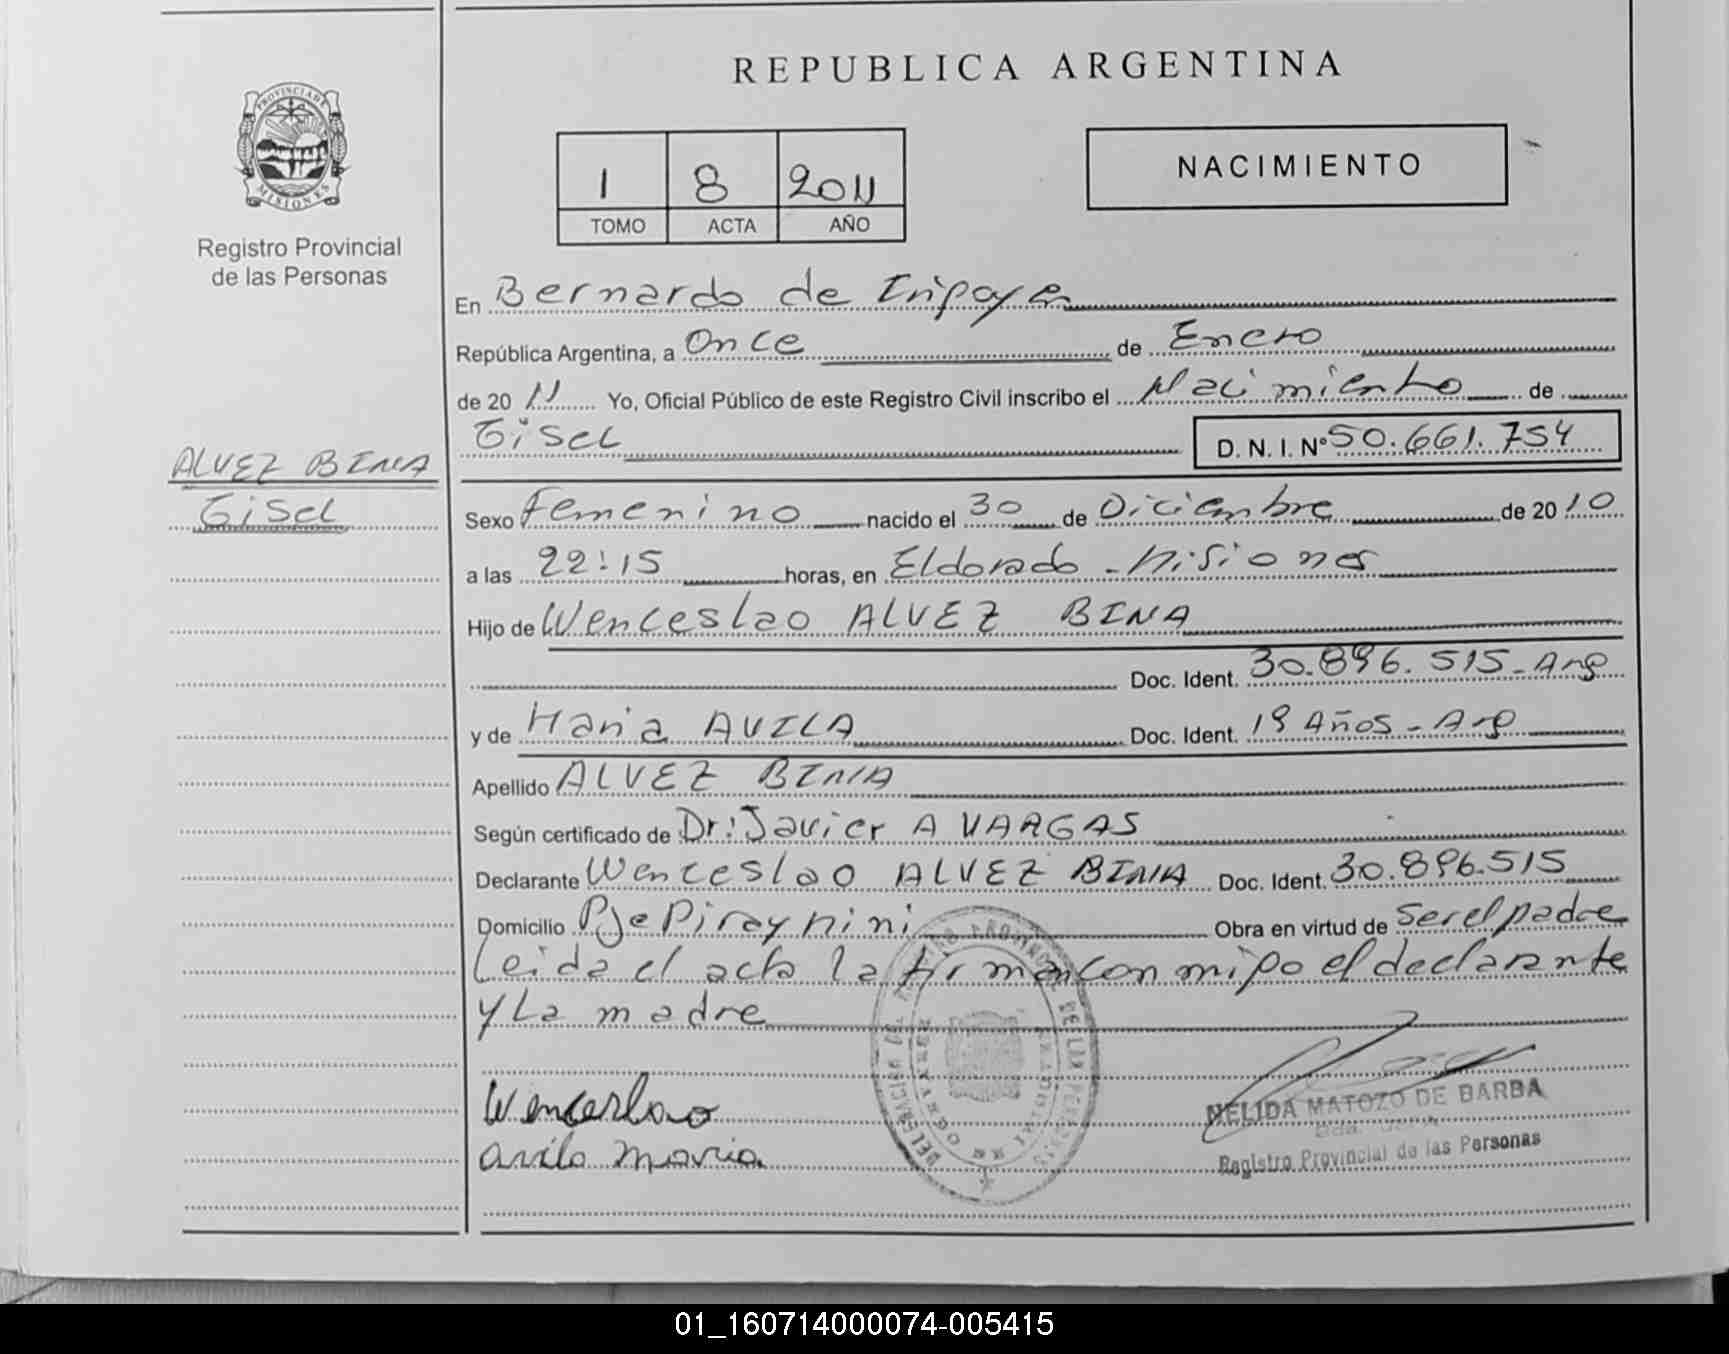 REPUBLICA ARGENTINA
PROVINCIA DE
MISIONES
Registro Provincial
de las Personas
1 8 2011
TOMO ACTA AÑO
NACIMIENTO
En Bernardo de Iripoyen
República Argentina, a Once de Enero
de 20 11 Yo, Oficial Público de este Registro Civil inscribo el Nacimiento de
Gisel D. N. I. Nº 50.661.754
ALVEZ BINA
Gisel
Sexo Femenino nacido el 30 de Diciembre de 2010
a las 22:15 horas, en Eldorado - Misiones
Hijo de Wenceslao ALVEZ BINA
Doc. Ident. 30.896.515 - Arg
y de Maria AVILA Doc. Ident. 19 Años - Arg
Apellido ALVEZ BINA
Según certificado de Dr: Javier A VARGAS
Declarante Wenceslao ALVEZ BINA Doc. Ident. 30.896.515
Domicilio Pje Piray Mini Obra en virtud de Ser el padre
Leida el acta la firman con mipo el declarante
y La madre
Wencerlao
avila maria
NELIDA MATOZO DE BARBA
Registro Provincial de las Personas
01_160714000074-005415